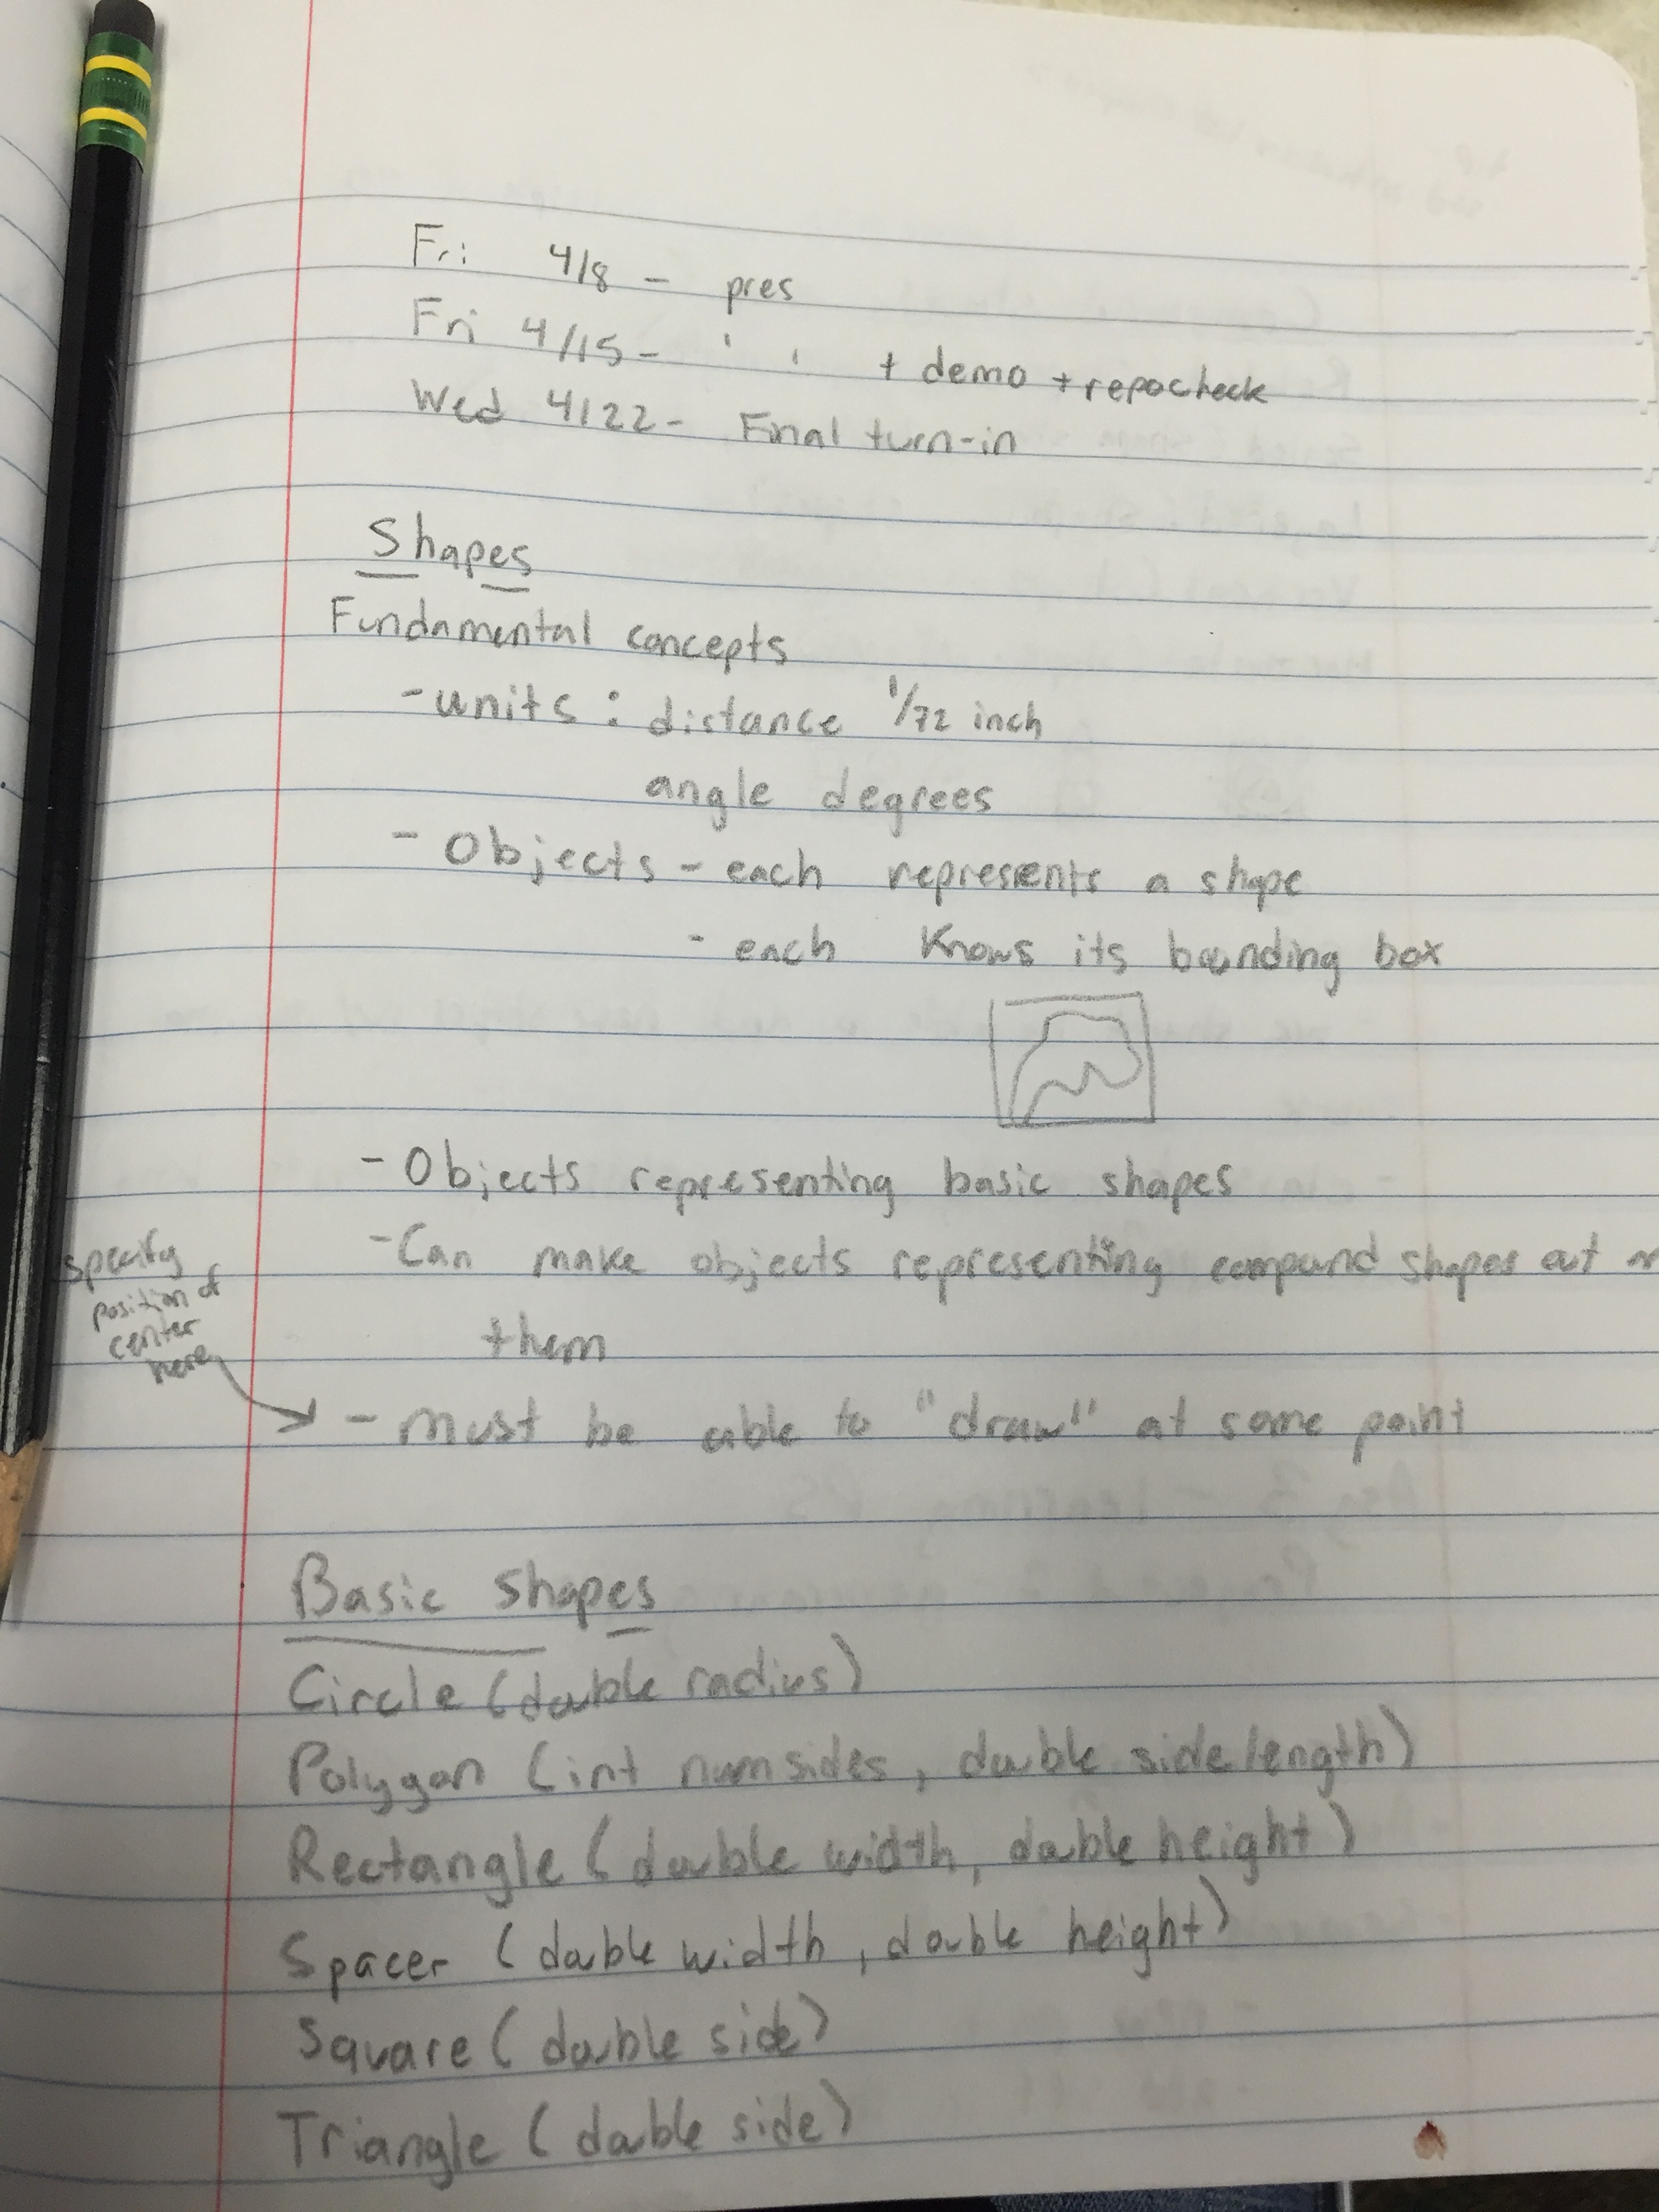 Fri 4/8 - pres
Fri 4/15 - " + demo + repocheck
Wed 4/22 - Final turn-in
Shapes
Fundamental concepts
- units : distance 1/72 inch
angle degrees
- Objects - each represents a shape
- each knows its bounding box
- Objects representing basic shapes
- Can make objects representing compound shapes out
them
specify
position of
center
here
- must be able to "draw" at some point
Basic shapes
Circle (double radius)
Polygon (int numsides, double sidelength)
Rectangle (double width, double height)
Spacer (double width, double height)
Square (double side)
Triangle (double side)